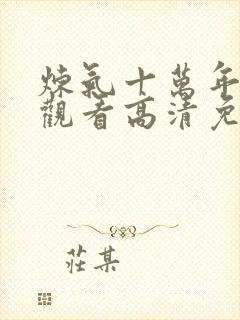 煉氣十萬年
觀看高清免
莊某